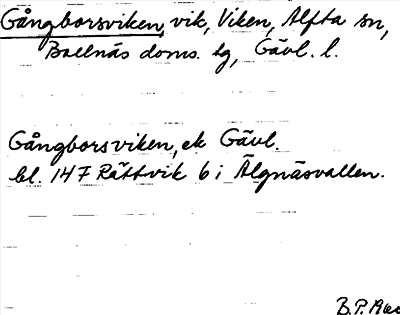 Gångborsviken, vik, Viken, Alfta sn,
Bollnäs doms. lg, Gävl. l.
Gångborsviken, ek Gävl.
bl. 147 Rättvik 6 i Älgnäsvallen.
B.P.